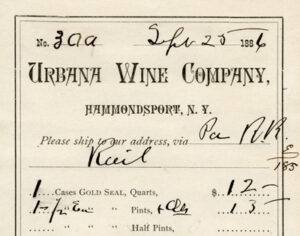 No. 300 Sept 25 1886
URBANA WINE COMPANY,
HAMMONDSPORT, N. Y.
Please ship to our address, via Pa R.R.
Rail
185
1 Cases GOLD SEAL, Quarts, $ 12 -
1 " " " Pints, 13 -
" " " Half Pints,